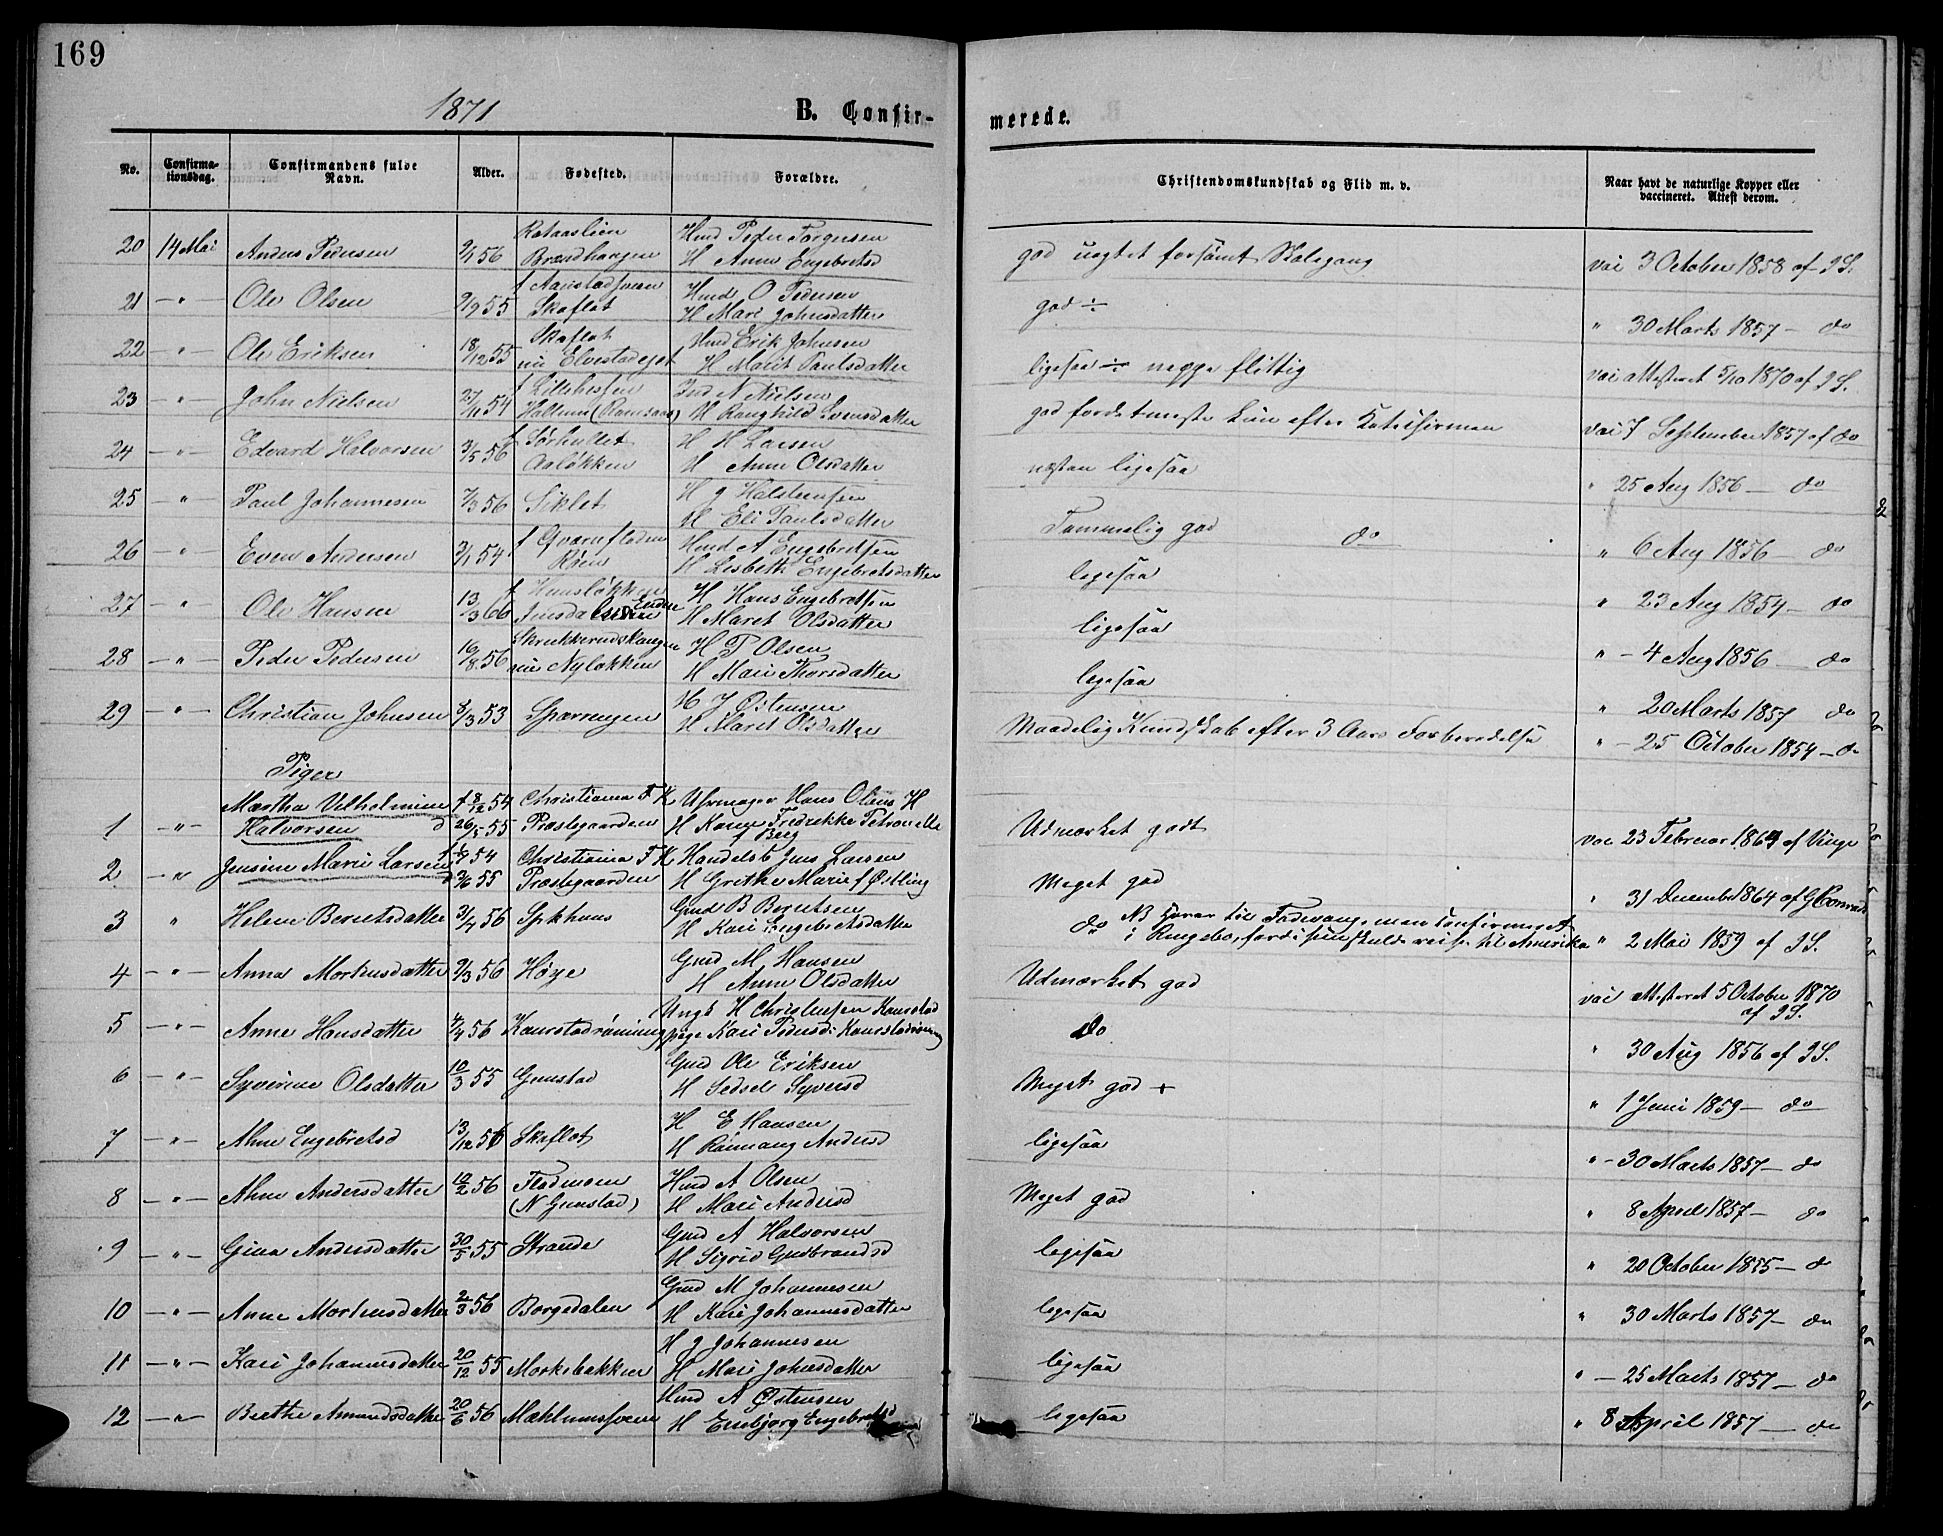 169
1871 B. Confir- merede.
No. Confirma-tionsdag. Confirmandens fulde Navn. Alder. Fødested. Forældre. Christendomskundskab og Flid m. v. Naar havt de naturlige Kopper eller vaccineret. Attest derom.
20 14 Mai Anders Pedersen 9/1 56 Brændhaugen Hmd Peder H Anne Engebretsd god uagtet forsømt Skolegang vac 3 October 1858 af J S.
21 -"- Ole Olsen 9/9 55 Skaflot Hmd O Pedersen H Mari Johnsdatter god ÷ " 30 Marts 1857 - do
22 -"- Ole Eriksen 18/12 55 Skaflot nu Hmd Erik Johnsen H Marit Paulsdatter ligesaa ÷ neppe flittig vac attesteret 5/10 1870 af J S.
23 -"- John Nielsen 27/11 54 Ind N Nielsen H Ranghild Svensdatter god vac 7 September 1857 af do
24 -"- Edvard Halvorsen 3/5 56 Aaløkken H H Larsen H Anne Olsdatter næsten ligesaa " 25 Aug 1856 - do
25 " Paul Johannesen 7/3 56 Siklet H J Halstensen H Eli Paulsdatter Temmelig god do " 6 Aug 1856 - do
26 " Even Andersen 3/1 54 Røen Hmd A Engebretsen H Lisbeth Engebretsdatter ligesaa " 23 Aug 1854 - do
27 " Ole Hansen 13/3 H Hans Engebretsen H Maret Olsdatter ligesaa " - 4 Aug 1856 - do
28 -"- Peder Pedersen 16/8 56 nu Nyløkken H P Olsen H Mari Thorsdatter ligesaa " 20 Marts 1857 do
29 -"- Christian Johnsen 8/3 53 H J Østensen H Maret Olsdatter Maadelig Kundskab efter 3 Aars Forberedelse " - 25 October 1854 - do
Piger
1 -"- Martha Vilhelmine Halvorsen f 8/12 54 d 26/5 55 Christiania F K Præstegaarden Uhrmager Hans Olius H H Karen Fredrikke Petronelle f Berg Udmærket godt vac 23 Februar 1864 af Vinge
2 -"- Jensine Marie Larsen 54 55 Christiania F K Præstegaarden Handelsb Jens Larsen H Grethe Marie f Østling Meget god " 31 December 1864
3 " Helene Berntsdatter 3/4 56 Gmd B Berntsen H Kari Engebretsdatter do NB til men confirmeret i Ringebo, fordi hun skulde reise til Amerika " 2 Mai 1859 af J S.
4 -"- Anna Mortensdatter 9/3 56 Høye Gmd M Hansen H Anne Olsdatter Udmærket god vac attesteret 5 October 1870 af J S.
5 -"- Anne Hansdatter 4/4 56 Kanstadrøning Ungk H Christensen Kanstad pige Kari Pedersd: Kanstadrøning do " 30 Aug 1856 af J S.
6 -"- Syverine Olsdatter 10/3 55 Gunstad Gmd Ole Eriksen H Sidsel Syversd Meget god + " 1 Juni 1859 - do
7 -"- Ahne Engebretsd 13/12 56 Skaflot H E Hansen H Rønnaug Andersd ligesaa " - 30 Marts 1857 - do
8 -"- Ahne Andersdatter 12/2 56 Fladmoen (N Gunstad) Hmd A Olsen H Mari Andersd Meget god " 8 April 1857 - do
9 -"- Gina Andersdatter 30/5 55 Strande Gmd A Halvorsen H Sigrid Gudbrandsd ligesaa " 20 October 1855 - do
10 -"- Anne Mortensdatter 2/3 56 Borgedalen Gmd M Johannesen H Kari Johannesdatter ligesaa " 30 Marts 1857 - do
11 -"- Kari Johannesdatter 20/12 55 Morkebakken H J Johannesen H Mari Johnsdatter ligesaa " - 25 Marts 1857 - do
12 -"- Berthe Amundsdatter 20/6 56 Hmd A Østensen H Engebretsd ligesaa " 8 April 1857 - do